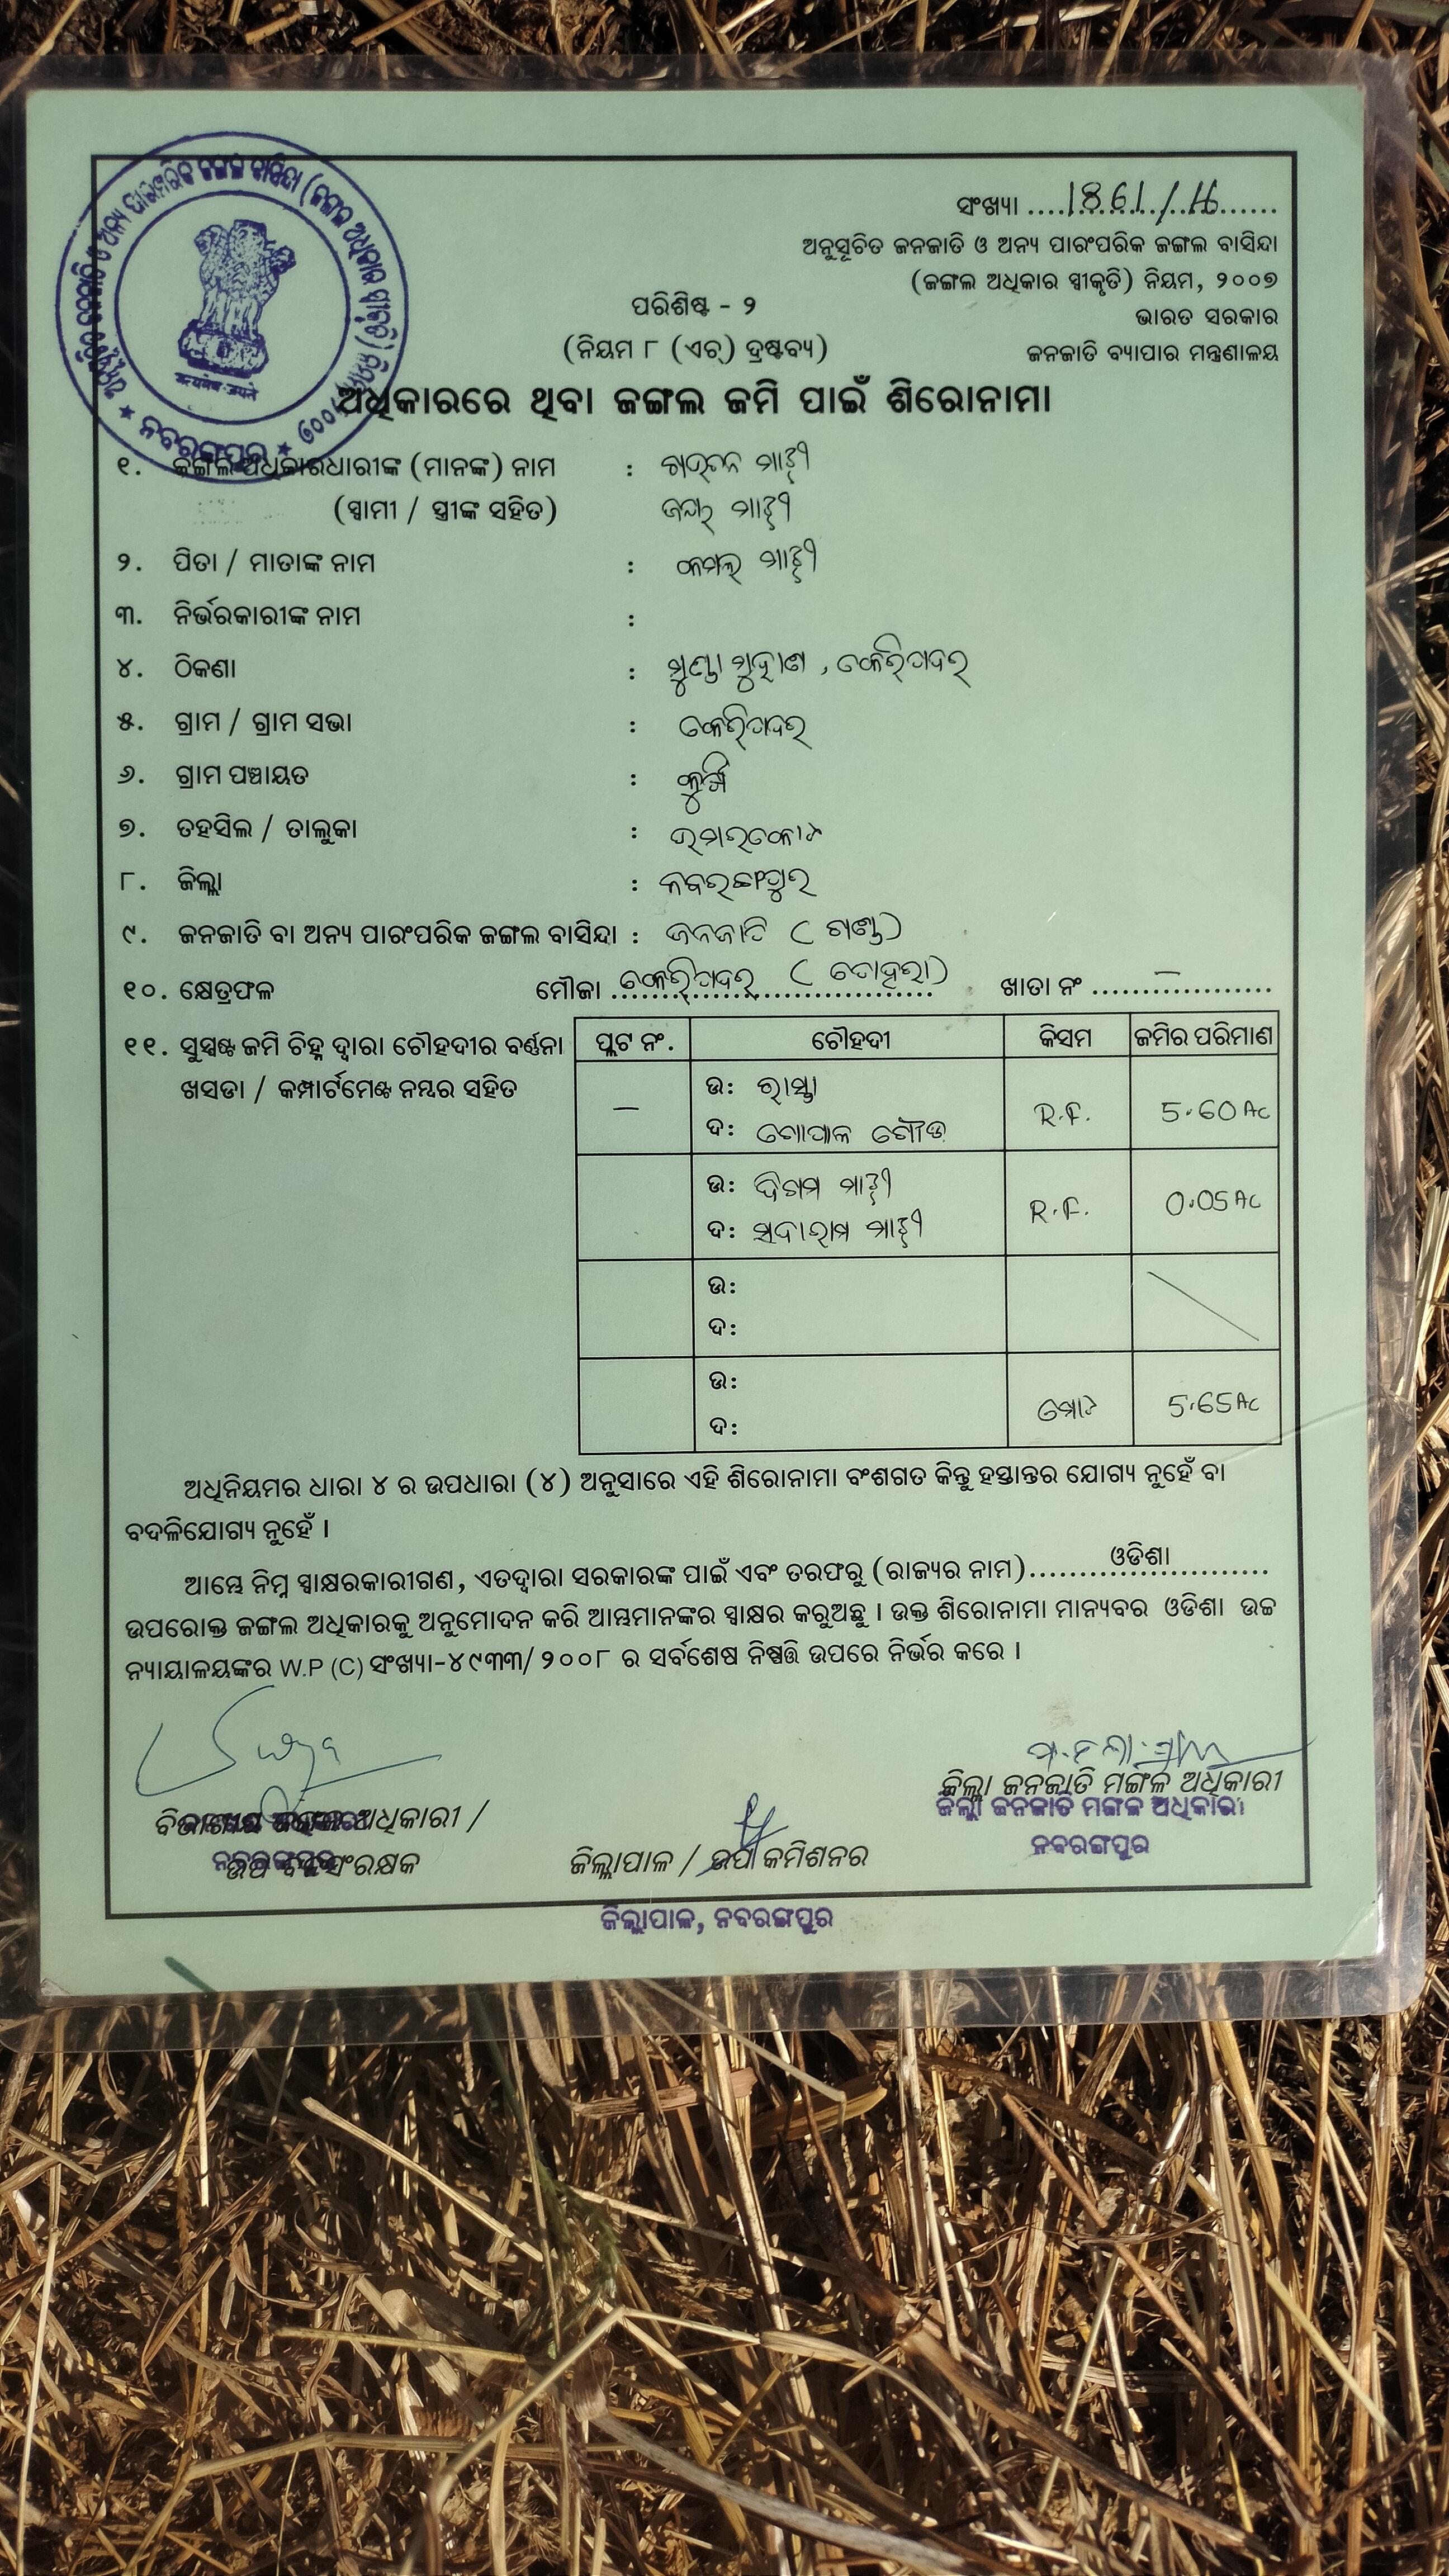 ସଂଖ୍ୟା ....1861/16......
ଅନୁସୂଚିତ ଜନଜାତି ଓ ଅନ୍ୟ ପାରଂପରିକ ଜଙ୍ଗଲ ବାସିନ୍ଦା
(ଜଙ୍ଗଲ ଅଧିକାର ସ୍ୱୀକୃତି) ନିୟମ, ୨୦୦୭
ଭାରତ ସରକାର
ଜନଜାତି ବ୍ୟାପାର ମନ୍ତ୍ରଣାଳୟ
ପରିଶିଷ୍ଟ - ୨
(ନିୟମ ୮ (ଏଚ୍) ଦ୍ରଷ୍ଟବ୍ୟ)
ଅଧିକାରରେ ଥିବା ଜଙ୍ଗଲ ଜମି ପାଇଁ ଶିରୋନାମା
ନବରଙ୍ଗପୁର
୧. ଜଙ୍ଗଲ ଅଧିକାରଧାରୀଙ୍କ (ମାନଙ୍କ) ନାମ : ମାଝୀ
(ସ୍ୱାମୀ / ସ୍ତ୍ରୀଙ୍କ ସହିତ) ମାଝୀ
୨. ପିତା / ମାତାଙ୍କ ନାମ : କମଲ୍ ମାଝୀ
୩. ନିର୍ଭରକାରୀଙ୍କ ନାମ :
୪. ଠିକଣା : ମୁଣ୍ଡା ମୁହାଣ ,
୫. ଗ୍ରାମ / ଗ୍ରାମ ସଭା :
୬. ଗ୍ରାମ ପଞ୍ଚାୟତ :
୭. ତହସିଲ / ତାଲୁକା : ଉମରକୋଟ
୮. ଜିଲ୍ଲା : ନବରଙ୍ଗପୁର
୯. ଜନଜାତି ବା ଅନ୍ୟ ପାରଂପରିକ ଜଙ୍ଗଲ ବାସିନ୍ଦା : ଜନଜାତି (ଗଣ୍ଡ)
୧୦. କ୍ଷେତ୍ରଫଳ ମୌଜା ........ ଖାତା ନଂ ....—....
୧୧. ସୁସ୍ପଷ୍ଟ ଜମି ଚିହ୍ନ ଦ୍ୱାରା ଚୌହଦୀର ବର୍ଣ୍ଣନା
ଖସଡା / କମ୍ପାର୍ଟମେଣ୍ଟ ନମ୍ବର ସହିତ
ପ୍ଲଟ ନଂ. ଚୌହଦୀ କିସମ ଜମିର ପରିମାଣ
— ଉ: ରାସ୍ତା R.F. 5.60 Ac
ଦ: ଗୋପାଳ ଗୌଡ
ଉ: ମାଝୀ R.F. 0.05 Ac
ଦ: ସଦାରାମ ମାଝୀ
ଉ:
ଦ:
ଉ: ମୋଟ 5.65 Ac
ଦ:
ଅଧିନିୟମର ଧାରା ୪ ର ଉପଧାରା (୪) ଅନୁସାରେ ଏହି ଶିରୋନାମା ବଂଶଗତ କିନ୍ତୁ ହସ୍ତାନ୍ତର ଯୋଗ୍ୟ ନୁହେଁ ବା
ବଦଳିଯୋଗ୍ୟ ନୁହେଁ ।
ଆମ୍ଭେ ନିମ୍ନ ସ୍ୱାକ୍ଷରକାରୀଗଣ, ଏତଦ୍ୱାରା ସରକାରଙ୍କ ପାଇଁ ଏବଂ ତରଫରୁ (ରାଜ୍ୟର ନାମ)........ଓଡିଶା........
ଉପରୋକ୍ତ ଜଙ୍ଗଲ ଅଧିକାରକୁ ଅନୁମୋଦନ କରି ଆମ୍ଭମାନଙ୍କର ସ୍ୱାକ୍ଷର କରୁଅଛୁ । ଉକ୍ତ ଶିରୋନାମା ମାନ୍ୟବର ଓଡିଶା ଉଚ୍ଚ
ନ୍ୟାୟାଳୟଙ୍କର W.P (C) ସଂଖ୍ୟା-୪୯୩୩/୨୦୦୮ ର ସର୍ବଶେଷ ନିଷ୍ପତ୍ତି ଉପରେ ନିର୍ଭର କରେ ।
ଜିଲ୍ଲା ଜନଜାତି ମଙ୍ଗଳ ଅଧିକାରୀ
ଜିଲ୍ଲା ଜନଜାତି ମଙ୍ଗଳ ଅଧିକାରୀ
ନବରଙ୍ଗପୁର
ଅଧିକାରୀ /
ଉପ ବନ ସଂରକ୍ଷକ
ଜିଲ୍ଲାପାଳ / ଉପ କମିଶନର
ଜିଲ୍ଲାପାଳ, ନବରଙ୍ଗପୁର